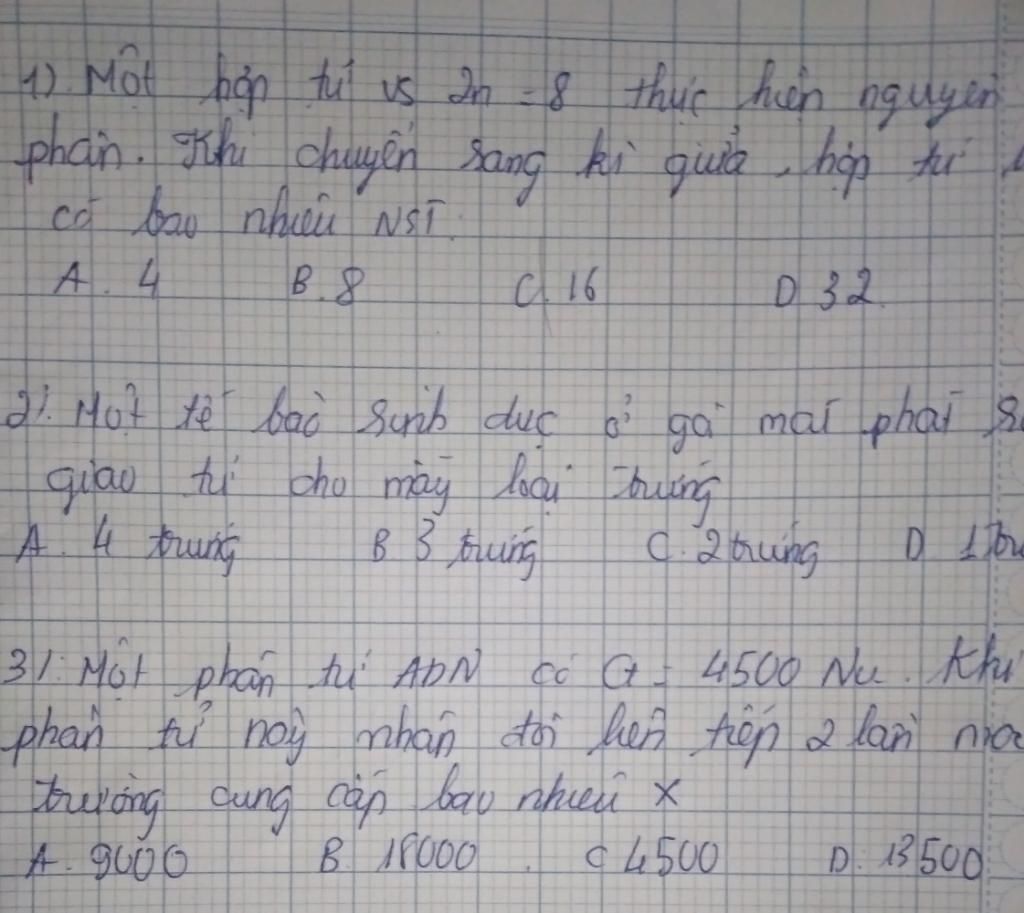 1) Một hợp tử vs 2n = 8 thực hiện nguyên
phân. Khi chuyển sang kì giữa, hợp tử
có bao nhiêu NST.
A. 4 B. 8 C. 16 D 32
2/. Một tế bào sinh dục ở gà mái phát
giao tử cho mấy loại trứng
A. 4 trứng B 3 trứng C. 2 trứng D 1
3/. Một phân tử ADN có G = 4500 Nu. Khi
phân tử này nhân đôi liên tiếp 2 lần
trường cung cấp bao nhiêu X
A. 9000 B. 18000. C 4500 D. 13500